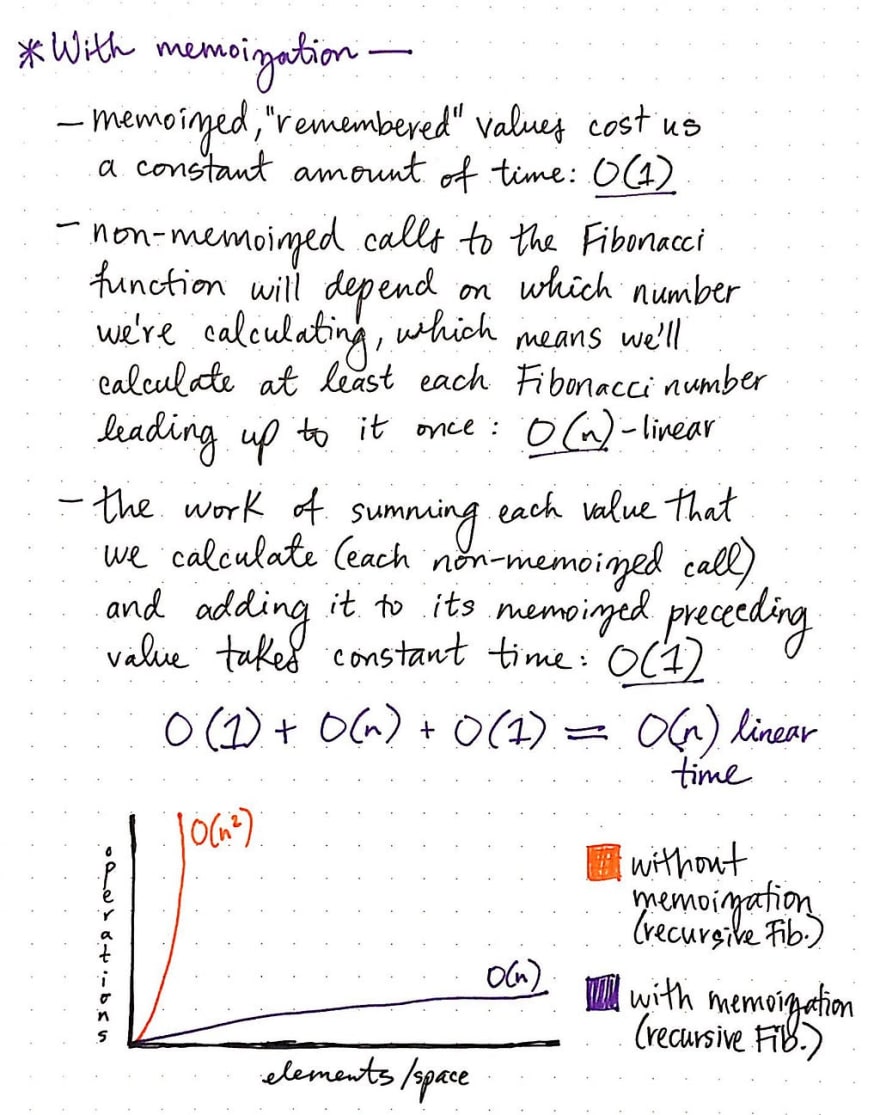 * With memoization —
– memoized, "remembered" values cost us
a constant amount of time: O(1)
– non-memoized calls to the Fibonacci
function will depend on which number
we're calculating, which means we'll
calculate at least each Fibonacci number
leading up to it once: O(n) - linear
– the work of summing each value that
we calculate (each non-memoized call)
and adding it to its memoized preceeding
value takes constant time: O(1)
O(1) + O(n) + O(1) = O(n) linear
time
O(n²)
operations
O(n)
elements/space
without
memoization
(recursive Fib.)
with memoization
(recursive Fib.)